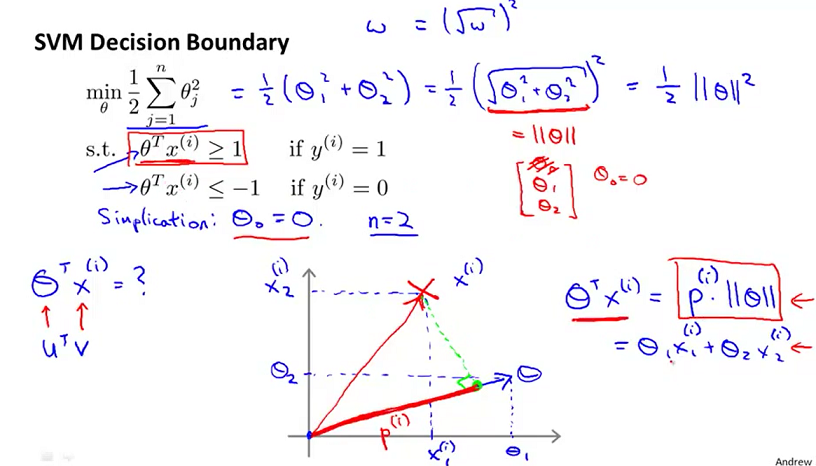 ω = (√ω)²
SVM Decision Boundary
min_θ 1/2 ∑_{j=1}^{n} θ_j² = 1/2 (θ₁² + θ₂²) = 1/2 (√(θ₁² + θ₂²))² = 1/2 ||θ||²
= ||θ||
s.t. θᵀx⁽ⁱ⁾ ≥ 1 if y⁽ⁱ⁾ = 1
→ θᵀx⁽ⁱ⁾ ≤ −1 if y⁽ⁱ⁾ = 0
[θ₀ θ₁ θ₂] θ₀ = 0
Simplication: θ₀ = 0. n=2
θᵀx⁽ⁱ⁾ = ?
↑ ↑
uᵀv
x₂⁽ⁱ⁾
x⁽ⁱ⁾
θ₂
θ
p⁽ⁱ⁾
x₁⁽ⁱ⁾
θ₁
θᵀx⁽ⁱ⁾ = p⁽ⁱ⁾ · ||θ|| ←
= θ₁x₁⁽ⁱ⁾ + θ₂x₂⁽ⁱ⁾ ←
Andrew